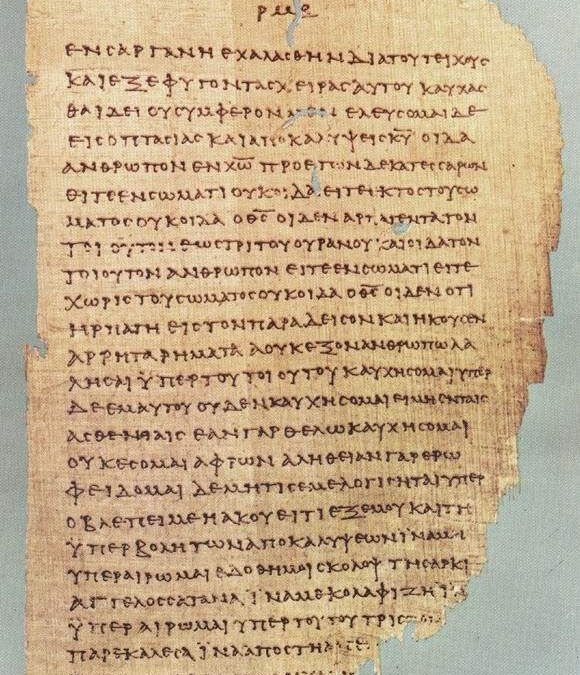 ΡΜΕ
ΕΝ ϹΑΡΓΑΝΗ ΕΧΑΛΑϹΘΗΝ ΔΙΑ ΤΟΥ ΤΕΙΧΟΥϹ
ΚΑΙ ΕΞΕΦΥΓΟΝ ΤΑϹ ΧΕΙΡΑϹ ΑΥΤΟΥ ΚΑΥΧΑϹ
ΘΑΙ ΔΕΙ ΟΥ ϹΥΜΦΕΡΟΝ ΜΕΝ ΕΛΕΥϹΟΜΑΙ ΔΕ
ΕΙϹ ΟΠΤΑϹΙΑϹ ΚΑΙ ΑΠΟΚΑΛΥΨΕΙϹ Κ̅Υ̅ ΟΙΔΑ
ΑΝΘΡΩΠΟΝ ΕΝ Χ̅Ω̅ ΠΡΟ ΕΤΩΝ ΔΕΚΑΤΕϹϹΑΡΩΝ
ΕΙΤΕ ΕΝ ϹΩΜΑΤΙ ΟΥΚ ΟΙΔΑ ΕΙΤΕ ΕΚΤΟϹ ΤΟΥ ϹΩ
ΜΑΤΟϹ ΟΥΚ ΟΙΔΑ Ο Θ̅Ϲ̅ ΟΙΔΕΝ ΑΡΠΑΓΕΝΤΑ ΤΟΝ
ΤΟΙΟΥΤΟΝ ΕΩϹ ΤΡΙΤΟΥ ΟΥΡΑΝΟΥ ΚΑΙ ΟΙΔΑ ΤΟΝ
ΤΟΙΟΥΤΟΝ ΑΝΘΡΩΠΟΝ ΕΙΤΕ ΕΝ ϹΩΜΑΤΙ ΕΙΤΕ
ΧΩΡΙϹ ΤΟΥ ϹΩΜΑΤΟϹ ΟΥΚ ΟΙΔΑ Ο Θ̅Ϲ̅ ΟΙΔΕΝ ΟΤΙ
ΗΡΠΑΓΗ ΕΙϹ ΤΟΝ ΠΑΡΑΔΕΙϹΟΝ ΚΑΙ ΗΚΟΥϹΕΝ
ΑΡΡΗΤΑ ΡΗΜΑΤΑ Α ΟΥΚ ΕΞΟΝ ΑΝΘΡΩΠΩ ΛΑ
ΛΗϹΑΙ ΫΠΕΡ ΤΟΥ ΤΟΙΟΥΤΟΥ ΚΑΥΧΗϹΟΜΑΙ ΥΠΕΡ
ΔΕ ΕΜΑΥΤΟΥ ΟΥΔΕΝ ΚΑΥΧΗϹΟΜΑΙ ΕΙ ΜΗ ΕΝ ΤΑΙϹ
ΑϹΘΕΝΕΙΑΙϹ ΕΑΝ ΓΑΡ ΘΕΛΩ ΚΑΥΧΗϹΟΜΑΙ
ΟΥΚ ΕϹΟΜΑΙ ΑΦΡΩΝ ΑΛΗΘΕΙΑΝ ΓΑΡ ΕΡΩ
ΦΕΙΔΟΜΑΙ ΔΕ ΜΗ ΤΙϹ ΕΜΕ ΛΟΓΙϹΗΤΑΙ ΥΠΕΡ
Ο ΒΛΕΠΕΙ ΜΕ Η ΑΚΟΥΕΙ ΤΙ ΕΞ ΕΜΟΥ ΚΑΙ ΤΗ
ΫΠΕΡΒΟΛΗ ΤΩΝ ΑΠΟΚΑΛΥΨΕΩΝ ΙΝΑ ΜΗ
ΥΠΕΡΑΙΡΩΜΑΙ ΕΔΟΘΗ ΜΟΙ ϹΚΟΛΟΨ ΤΗ ϹΑΡΚΙ
ΑΓΓΕΛΟϹ ϹΑΤΑΝΑ ΪΝΑ ΜΕ ΚΟΛΑΦΙΖΗ ΪΝΑ
ΫΠΕΡΑΙΡΩΜΑΙ ΥΠΕΡ ΤΟΥΤΟΥ ΤΡΙϹ
ΠΑΡΕΚΑΛΕϹΑ ΪΝΑ ΑΠΟϹΤΗ